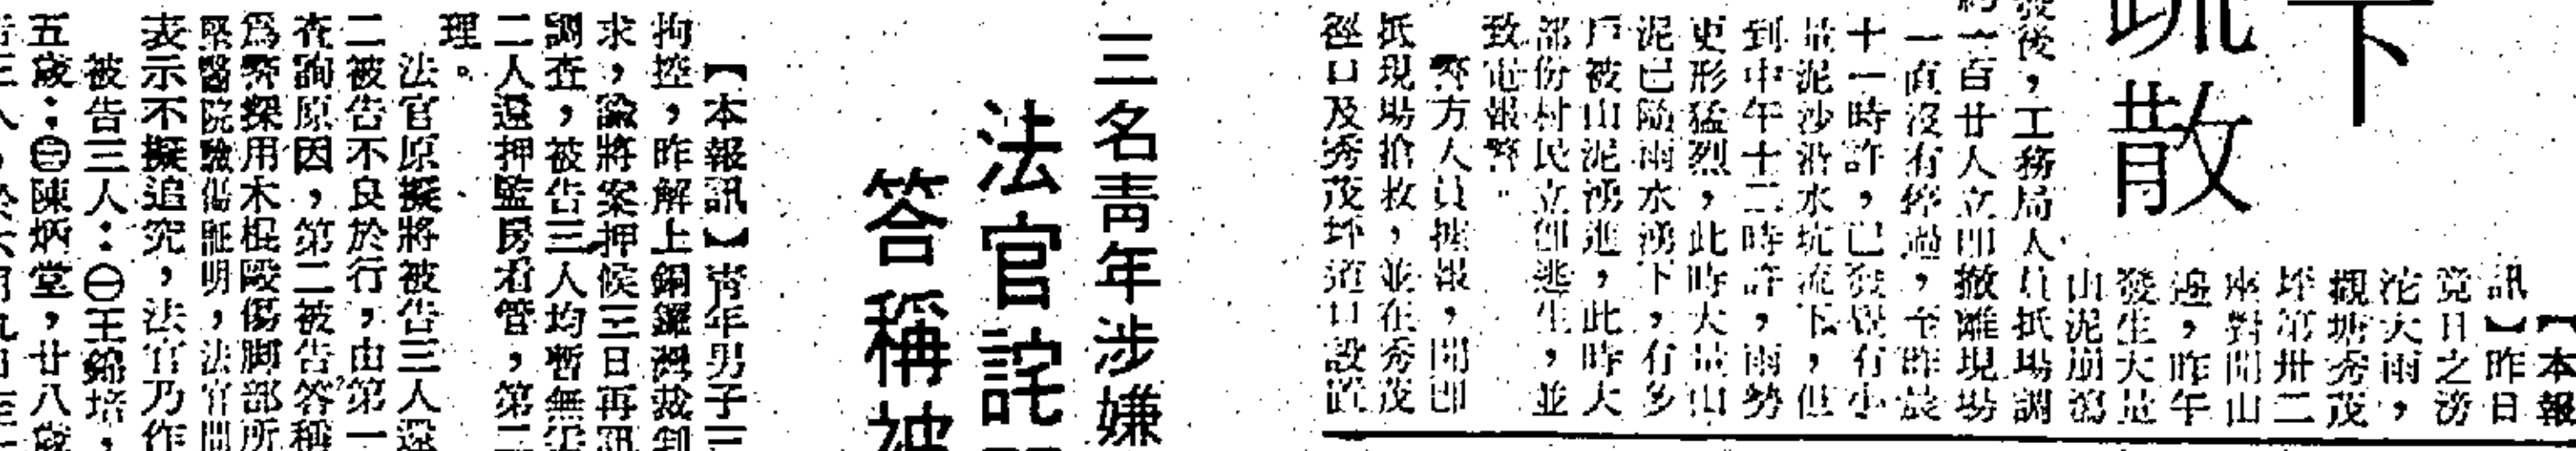 下
疏散
【本報
訊】昨日
竟日之滂
沱大雨，
觀塘秀茂
坪第卅二
座對開山
邊，昨午
發生大量
山泥崩瀉
發後，工務局人員抵場調
一百廿人立即撤離現場
一直沒有停過，至昨晨
十一時許，已發覺有小
量泥沙沿水坑流下，但
到中午十二時許，雨勢
更形猛烈，此時大量山
泥已隨雨水湧下，有多
戶被山泥湧進，此時大
部份村民立即逃生，並
致電報警。
警方人員據報，開即
抵現場搶救，並在秀茂
徑口及秀茂坪道口設置
三名青年涉嫌
法官詫
答稱被
【本報訊】青年男子三
拘控，昨解上銅鑼灣裁判
求，諭將案押候三日再訊
調查，被告三人均暫無需
二人還押監房看管，第三
理。
法官原擬將被告三人還
二被告不良於行，由第一
查詢原因，第二被告答稱
爲警探用木棍毆傷脚部所
緊醫院驗傷証明，法官問
表示不擬追究，法官乃作
被告三人：㊀王錦培，
五歲：㊂陳炳堂，廿八歲